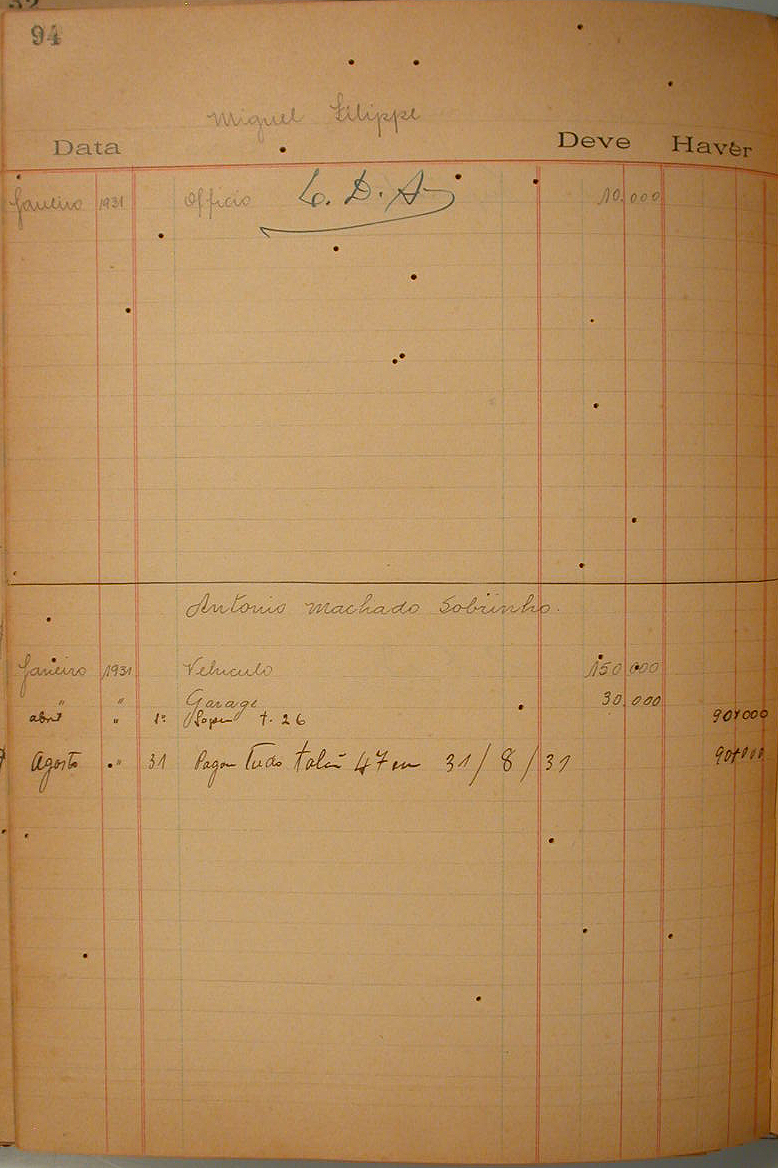 94
Miguel Filippe
Data Deve Haver
Janeiro 1931 Officio L. D. A. 10.000
Antonio Machado Sobrinho.
Janeiro 1931 Vehiculo 150.000
" " Garage 30.000
abril " 1º t. 26 90$000
Agosto " 31 Pagou Tudo talão 47 em 31/8/31 90$000